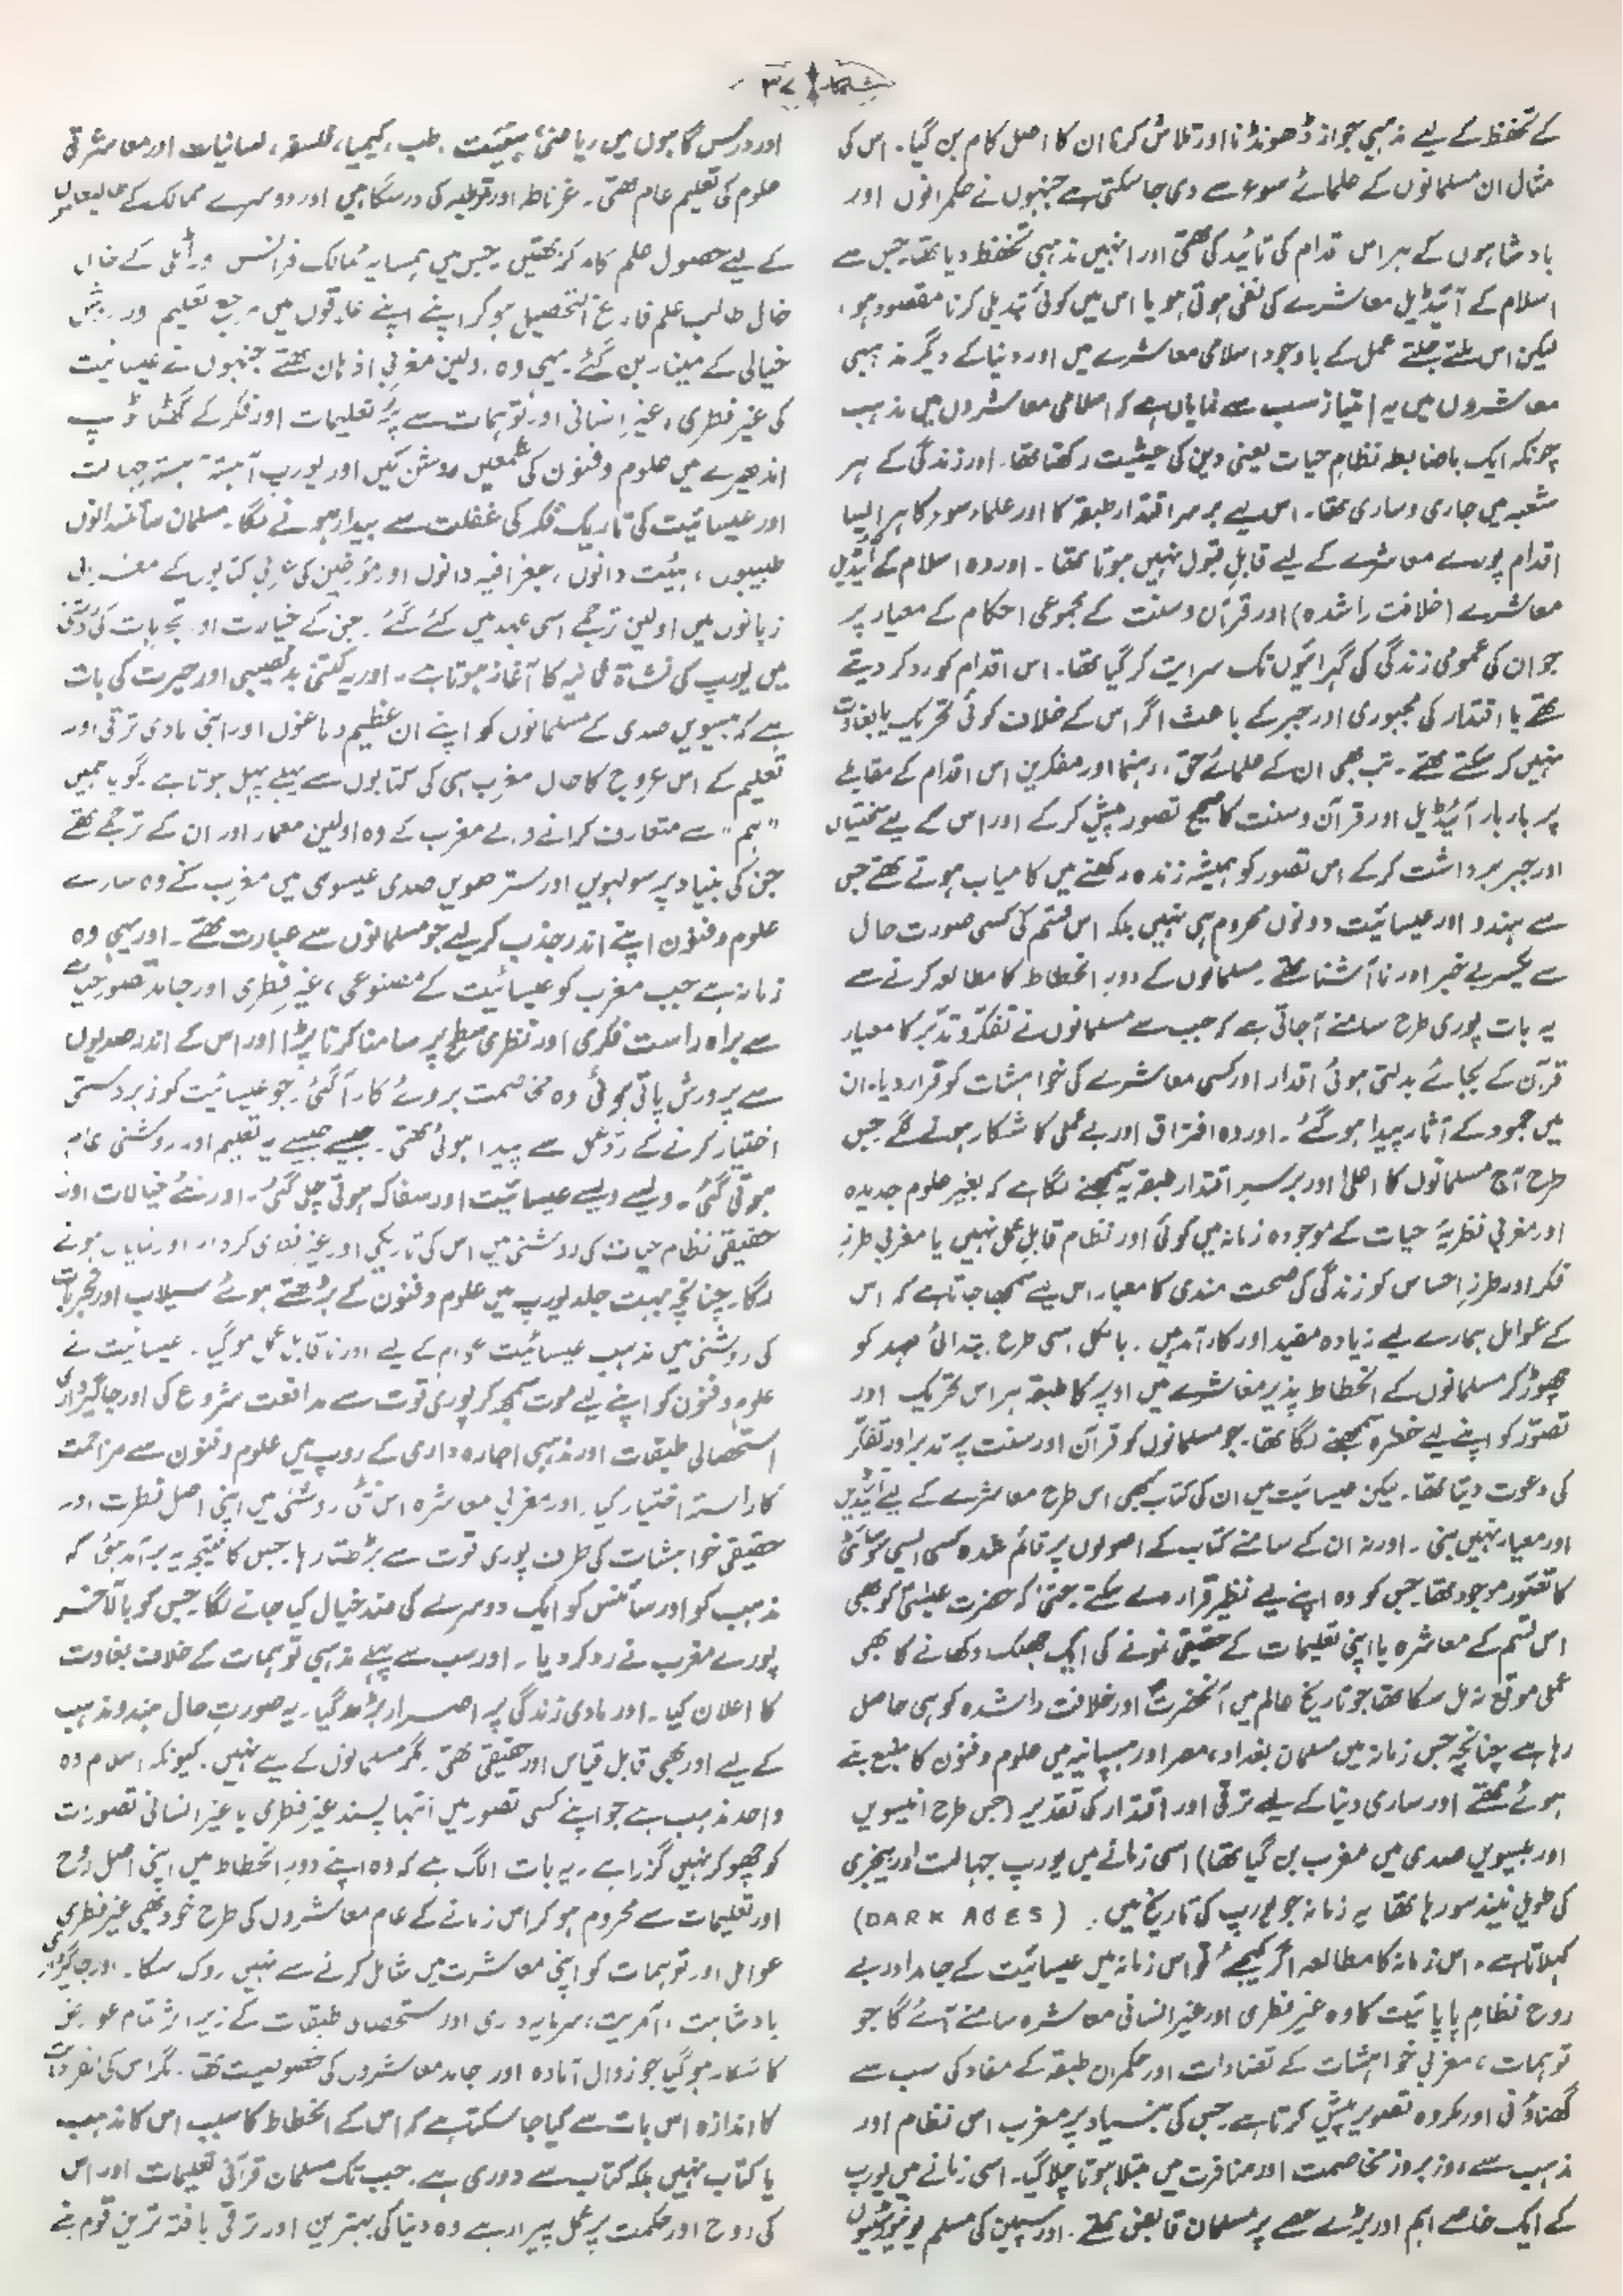 ۳۷
کے تحفظ کے لیے مذہبی جواز ڈھونڈنا اور تلاش کرنا ان کا اصل کام بن گیا۔ اس کی
مثال ان مسلمانوں کے علمائے سوء سے دی جا سکتی ہے جنہوں نے حکمرانوں اور
بادشاہوں کے ہر اس قدام کی تائید کی تھی اور انہیں مذہبی تحفظ دیا تھا۔ جس سے
اسلام کے آئیڈیل معاشرے کی نفی ہوتی ہو یا اس میں کوئی تبدیلی کرنا مقصود ہو،
لیکن اس ملتے جلتے عمل کے باوجود اسلامی معاشرے میں اور دنیا کے دیگر مذہبی
معاشروں میں یہ امتیاز سب سے نمایاں ہے کہ اسلامی معاشروں میں مذہب
چونکہ ایک باضابطہ نظام حیات یعنی دین کی حیثیت رکھتا تھا۔ اور زندگی کے ہر
شعبہ میں جاری و ساری تھا۔ اس لیے برسر اقتدار طبقہ کا اور علماء سوء کا ہر ایسا
اقدام پورے معاشرے کے لیے قابل قبول نہیں ہوتا تھا۔ اور وہ اسلام کے آئیڈیل
معاشرے (خلافت راشدہ) اور قرآن و سنت کے مجموعی احکام کے معیار پر
جو ان کی عمومی زندگی کی گہرائیوں تک سرایت کر گیا تھا۔ اس اقدام کو رد کر دیتے
تھے یا اقتدار کی مجبوری اور جبر کے باعث اگر اس کے خلاف کوئی تحریک یا بغاوت
نہیں کر سکتے تھے۔ تب بھی ان کے علمائے حق، رہنما اور مفکرین اس اقدام کے مقابلے
پر بار بار آئیڈیل اور قرآن و سنت کا صحیح تصور پیش کر کے اور اس کے لیے سختیاں
اور جبر برداشت کر کے اس تصور کو ہمیشہ زندہ رکھنے میں کامیاب ہوتے تھے جس
سے ہندو اور عیسائیت دونوں محروم ہی نہیں بلکہ اس قسم کی کسی صورت حال
سے یکسر بے خبر اور ناآشنا تھے۔ مسلمانوں کے دور انحطاط کا مطالعہ کرنے سے
یہ بات پوری طرح سامنے آ جاتی ہے کہ جب سے مسلمانوں نے تفکر و تدبّر کا معیار
قرآن کے بجائے بدلتی ہوئی اقدار اور کسی معاشرے کی خواہشات کو قرار دیا۔ ان
میں جمود کے آثار پیدا ہو گئے۔ اور وہ افتراق اور بے عملی کا شکار ہونے لگے جس
طرح آج مسلمانوں کا اعلیٰ اور برسر اقتدار طبقہ یہ سمجھنے لگا ہے کہ بغیر علوم جدیدہ
اور مغربی نظریۂ حیات کے موجودہ زمانہ میں کوئی اور نظام قابل عمل نہیں یا مغربی طرز
فکر اور طرز احساس کو زندگی کی صحت مندی کا معیار اس لیے سمجھا جاتا ہے کہ اس
کے عوامل ہمارے لیے زیادہ مفید اور کارآمد ہیں۔ بالکل اسی طرح ابتدائی عہد کو
چھوڑ کر مسلمانوں کے انحطاط پذیر معاشرے میں اوپر کا طبقہ ہر اس تحریک اور
تصوّر کو اپنے لیے خطرہ سمجھنے لگا تھا۔ جو مسلمانوں کو قرآن اور سنت پر تدبر اور تفکّر
کی دعوت دیتا تھا۔ لیکن عیسائیت میں ان کی کتاب کبھی اس طرح معاشرے کے لیے آئیڈیل
اور معیار نہیں بنی۔ اور نہ ان کے سامنے کتاب کے اصولوں پر قائم شدہ کسی ایسی سوسائٹی
کا تصّور موجود تھا جس کو وہ اپنے لیے نظیر قرار دے سکتے۔ حتیٰ کہ حضرت عیسیٰؑ کو بھی
اس قسم کے معاشرہ یا اپنی تعلیمات کے حقیقی نمونے کی ایک جھلک دکھانے کا بھی
عملی موقع نہ مل سکا تھا جو تاریخ عالم میں آنحضرتؐ اور خلافت راشدہ کو ہی حاصل
رہا ہے چنانچہ جس زمانہ میں مسلمان بغداد، مصر اور ہسپانیہ میں علوم و فنون کا منبع بنے
ہوئے تھے اور ساری دنیا کے لیے ترقی اور اقتدار کی تقدیر (جس طرح انیسویں
اور بیسویں صدی میں مغرب بن گیا تھا) اسی زمانے میں یورپ جہالت اور بیخبری
کی طویل نیند سو رہا تھا یہ زمانہ جو یورپ کی تاریخ میں (DARK AGES)
کہلاتا ہے۔ اس زمانہ کا مطالعہ اگر کیجیے تو اس زمانہ میں عیسائیت کے جامد اور بے
روح نظام پاپائیت کا وہ غیر فطری اور غیر انسانی معاشرہ سامنے آئے گا جو
توہمات، مغربی خواہشات کے تضادات اور حکمران طبقہ کے مفاد کی سب سے
گھناؤنی اور مکروہ تصویر پیش کرتا ہے۔ جس کی بنیاد پر مغرب اس نظام اور
مذہب سے روز بروز مخاصمت اور منافرت میں مبتلا ہوتا چلا گیا۔ اسی زمانے میں یورپ
کے ایک خاصے اہم اور بڑے حصے پر مسلمان قابض تھے۔ اور سپین کی مسلم یونیورسٹیوں
اور درس گاہوں میں ریاضی، ہیئیت، طب، کیمیا، فلسفہ، لسانیات اور معاشرتی
علوم کی تعلیم عام تھی۔ غرناطہ اور قرطبہ کی درسگاہیں اور دوسرے ممالک کے طالبعلموں
کے لیے حصول علم کا مرکز تھیں۔ جس میں ہمسایہ ممالک فرانس اور اٹلی کے خال
خال طالب علم فارغ التحصیل ہو کر اپنے اپنے علاقوں میں مرجع تعلیم اور روشن
خیالی کے مینار بن گئے۔ یہی وہ اولین مغربی اذہان تھے جنہوں نے عیسائیت
کی غیر فطری، غیر انسانی اور توہمات سے پُر تعلیمات اور فکر کے گھٹا ٹوپ
اندھیرے میں علوم و فنون کی شمعیں روشن کیں اور یورپ آہستہ آہستہ جہالت
اور عیسائیت کی تاریک فکر کی غفلت سے بیدار ہونے لگا۔ مسلمان سائنسدانوں
طبیبوں، ہیئت دانوں، جغرافیہ دانوں اور مؤرخین کی عربی کتابوں کے مغربی
زبانوں میں اولین ترجمے اسی عہد میں کئے گئے۔ جن کے خیالات اور تجربات کی روشنی
میں یورپ کی نشاۃ ثانیہ کا آغاز ہوتا ہے۔ اور یہ کتنی بدنصیبی اور حیرت کی بات
ہے کہ بیسویں صدی کے مسلمانوں کو اپنے ان عظیم دماغوں اور اپنی مادی ترقی اور
تعلیم کے اس عروج کا حال مغرب ہی کی کتابوں سے پہلے پہل ہوتا ہے۔ گویا ہمیں
"ہم" سے متعارف کرانے والے مغرب کے وہ اولین معمار اور ان کے ترجمے تھے
جن کی بنیاد پر سولہویں اور سترھویں صدی عیسوی میں مغرب نے وہ سارے
علوم و فنون اپنے اندر جذب کر لیے جو مسلمانوں سے عبارت تھے۔ اور یہی وہ
زمانہ ہے جب مغرب کو عیسائیت کے مصنوعی، غیر فطری اور جامد تصور حیات
سے براہ راست فکری اور نظری سطح پر سامنا کرنا پڑا اور اس کے اندر صدیوں
سے پرورش پاتی ہوئی وہ مخاصمت بروئے کار آ گئی۔ جو عیسائیت کو زبردستی
اختیار کرنے کے ردّعمل سے پیدا ہوئی تھی۔ جیسے جیسے یہ تعلیم اور روشنی عام
ہوتی گئی۔ ویسے ویسے عیسائیت اور سفاک ہوتی چلی گئی۔ اور نئے خیالات اور
حقیقی نظام حیات کی روشنی میں اس کی تاریکی اور غیر فطری کردار اور نمایاں ہونے
لگا۔ چنانچہ بہت جلد یورپ میں علوم و فنون کے بڑھتے ہوئے سیلاب اور تجربات
کی روشنی میں مذہب عیسائیت عوام کے لیے اور ناقابل عمل ہو گیا۔ عیسائیت نے
علوم و فنون کو اپنے لیے موت سمجھ کر پوری قوت سے مدافعت شروع کی اور جاگیرداری
استحصالی طبقات اور مذہبی اجارہ داری کے روپ میں علوم و فنون سے مزاحمت
کا راستہ اختیار کیا۔ اور مغربی معاشرہ اس نئی روشنی میں اپنی اصل فطرت اور
حقیقی خواہشات کی طرف پوری قوت سے بڑھتا رہا۔ جس کا نتیجہ یہ برآمد ہوا کہ
مذہب کو اور سائنس کو ایک دوسرے کی ضد خیال کیا جانے لگا۔ جس کو بالآخر
پورے مغرب نے رد کر دیا۔ اور سب سے پہلے مذہبی توہمات کے خلاف بغاوت
کا اعلان کیا۔ اور مادی زندگی پر اصرار بڑھ گیا۔ یہ صورت حال ہندو مذہب
کے لیے اور بھی قابل قیاس اور حقیقی تھی۔ مگر مسلمانوں کے لیے نہیں۔ کیونکہ اسلام وہ
واحد مذہب ہے جو اپنے کسی تصور میں انتہا پسند غیر فطری یا غیر انسانی تصورات
کو چھو کر نہیں گزرا ہے۔ یہ بات الگ ہے کہ وہ اپنے دور انحطاط میں اپنی اصل رُوح
اور تعلیمات سے محروم ہو کر اس زمانے کے عام معاشروں کی طرح خود بھی غیر فطری
عوامل اور توہمات کو اپنی معاشرت میں شامل کرنے سے نہیں روک سکا۔ اور جاگیرداری
بادشاہت، آمریت، سرمایہ داری اور استحصالی طبقات کے زیر اثر تمام عوارض
کا شکار ہو گیا جو زوال آمادہ اور جامد معاشروں کی خصوصیت تھے۔ مگر اس کی انفرادیت
کا اندازہ اس بات سے کیا جا سکتا ہے کہ اس کے انحطاط کا سبب اس کا مذہب
یا کتاب نہیں بلکہ کتاب سے دوری ہے۔ جب تک مسلمان قرآنی تعلیمات اور اس
کی روح اور حکمت پر عمل پیرا رہے وہ دنیا کی بہترین اور ترقی یافتہ ترین قوم بنے